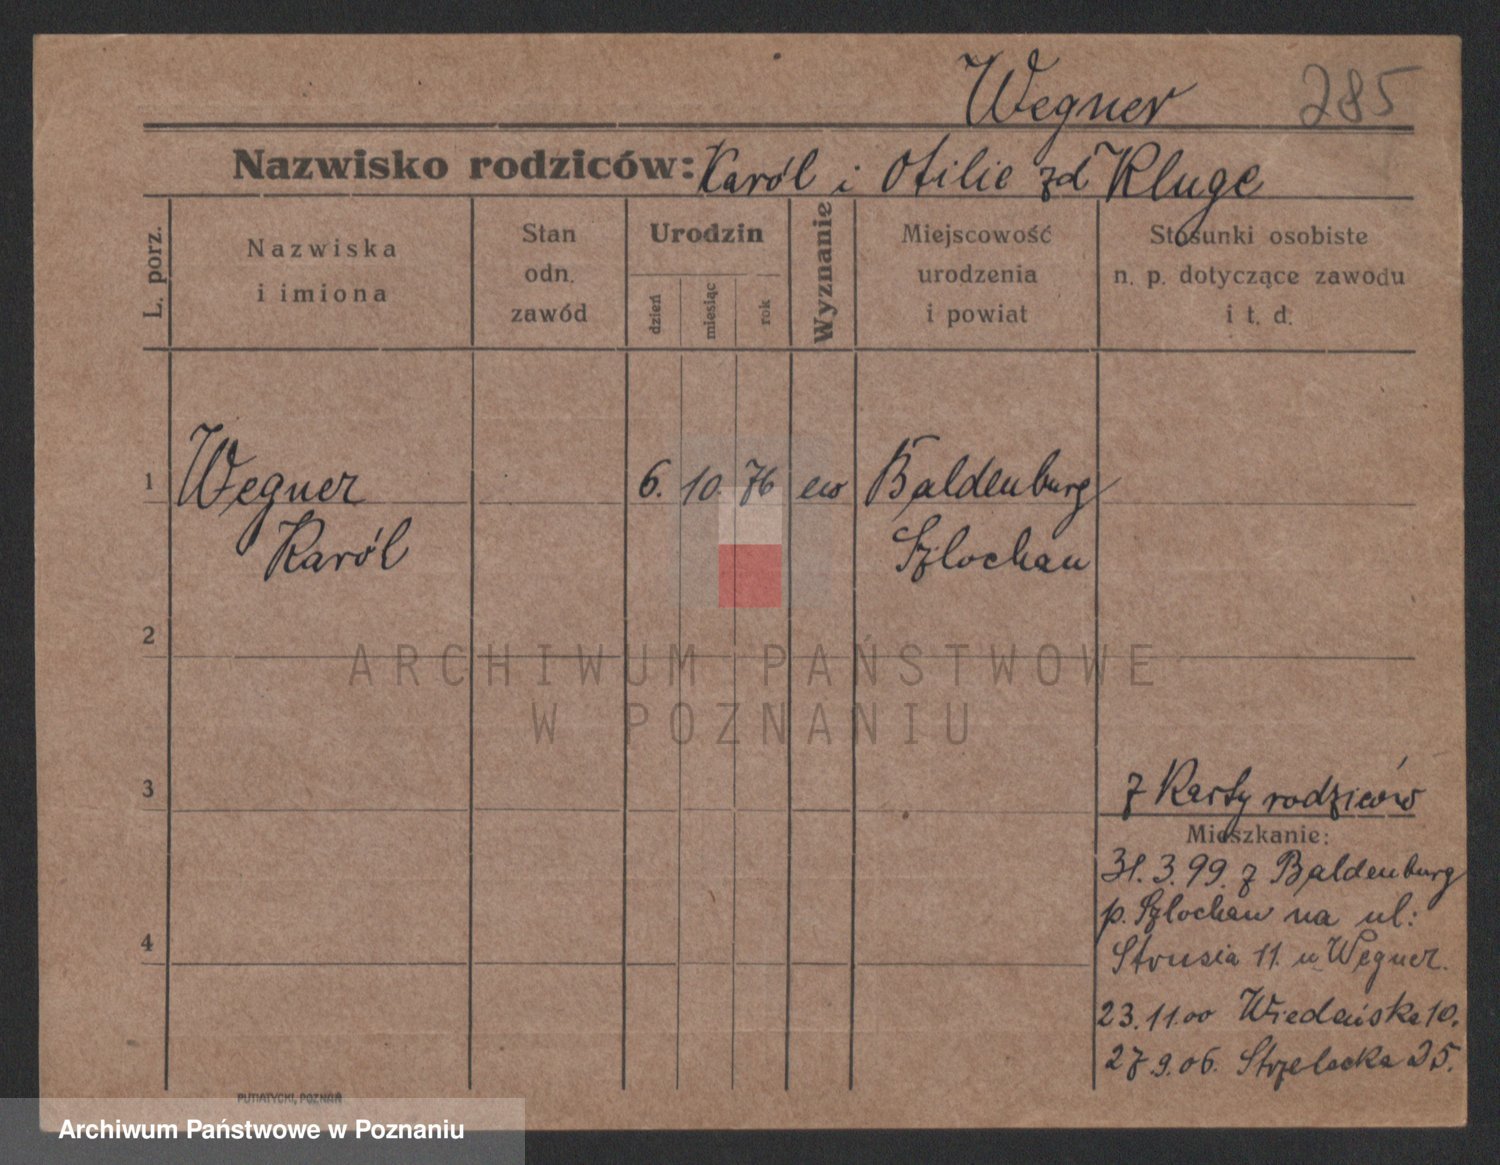 Wegner 285
Nazwisko rodziców: Karól i Otilie zd Kluge
L. porz.
Nazwiska
i imiona
Stan
odn.
zawód
Urodzin
dzień
miesiąc
rok
Wyznanie
Miejscowość
urodzenia
i powiat
Stosunki osobiste
n. p. dotyczące zawodu
i t. d.
1 Wegner 6. 10. 76 ew Baldenburg
Karól Szlochau
ARCHIWUM PAŃSTWOWE
W POZNANIU
2
3
z Karty rodziców
Mieszkanie:
31. 3. 99. z Baldenburg
p. Szlochau na ul:
4
Strusia 11. u Wegner.
23. 11. 00 Wiedeńska 10.
27. 9. 06. Strzelecka 25.
PUTIATYCKI, POZNAŃ
Archiwum Państwowe w Poznaniu